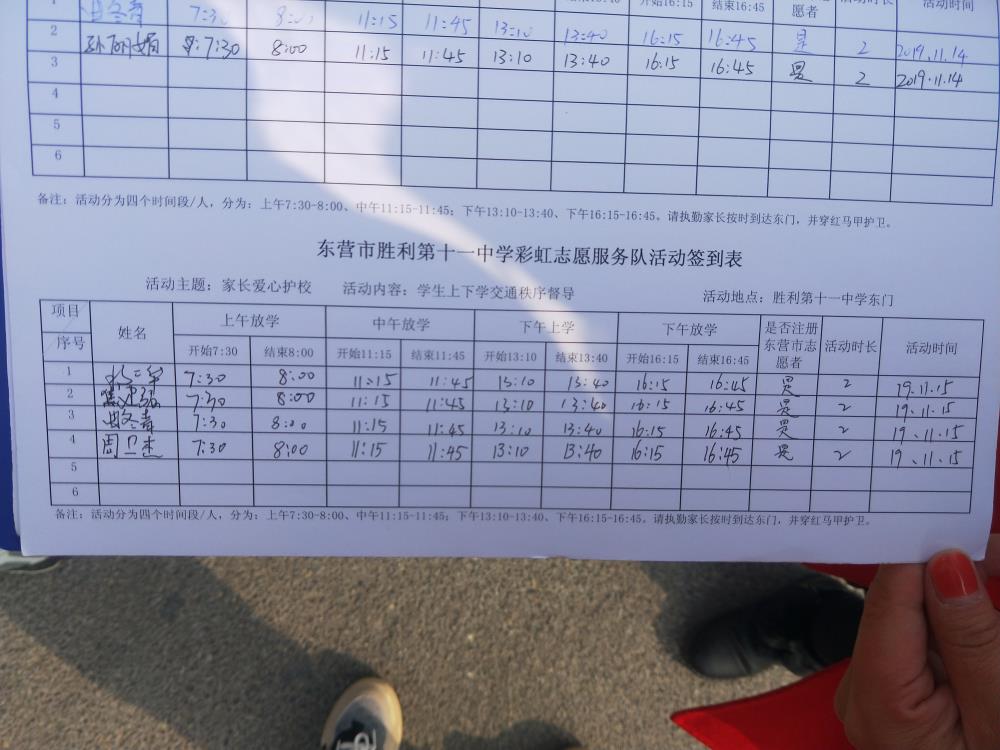 开始16:15 结束16:45 愿者 活动时长 活动时间
1 曲冬青 7:30 8:00 11:15 11:45 13:10 13:40 16:15 16:45 是 2 2019.11.14
2 孙丽娟 7:30 8:00 11:15 11:45 13:10 13:40 16:15 16:45 是 2 2019.11.14
3
4
5
6
备注：活动分为四个时间段/人，分为：上午7:30-8:00、中午11:15-11:45；下午13:10-13:40、下午16:15-16:45。请执勤家长按时到达东门，并穿红马甲护卫。
东营市胜利第十一中学彩虹志愿服务队活动签到表
活动主题：家长爱心护校 活动内容：学生上下学交通秩序督导 活动地点：胜利第十一中学东门
项目 序号 姓名 上午放学 中午放学 下午上学 下午放学 是否注册东营市志愿者 活动时长 活动时间
开始7:30 结束8:00 开始11:15 结束11:45 开始13:10 结束13:40 开始16:15 结束16:45
1 7:30 8:00 11:15 11:45 13:10 13:40 16:15 16:45 是 2 19.11.15
2 7:30 8:00 11:15 11:45 13:10 13:40 16:15 16:45 是 2 19.11.15
3 曲冬青 7:30 8:00 11:15 11:45 13:10 13:40 16:15 16:45 是 2 19.11.15
4 周卫杰 7:30 8:00 11:15 11:45 13:10 13:40 16:15 16:45 是 2 19.11.15
5
6
备注：活动分为四个时间段/人，分为：上午7:30-8:00、中午11:15-11:45；下午13:10-13:40、下午16:15-16:45。请执勤家长按时到达东门，并穿红马甲护卫。